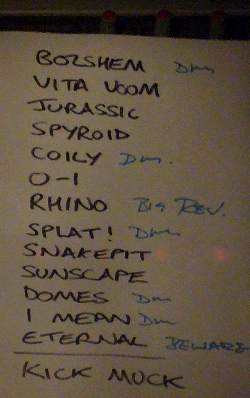 BOLSHEM Dm
VITA VOOM
JURASSIC
SPYROID
COILY Dm.
O-I
RHINO BIG REV.
SPLAT! Dm
SNAKEPIT
SUNSCAPE
DOMES Dm
I MEAN Dm
ETERNAL BEWARE
KICK MUCK